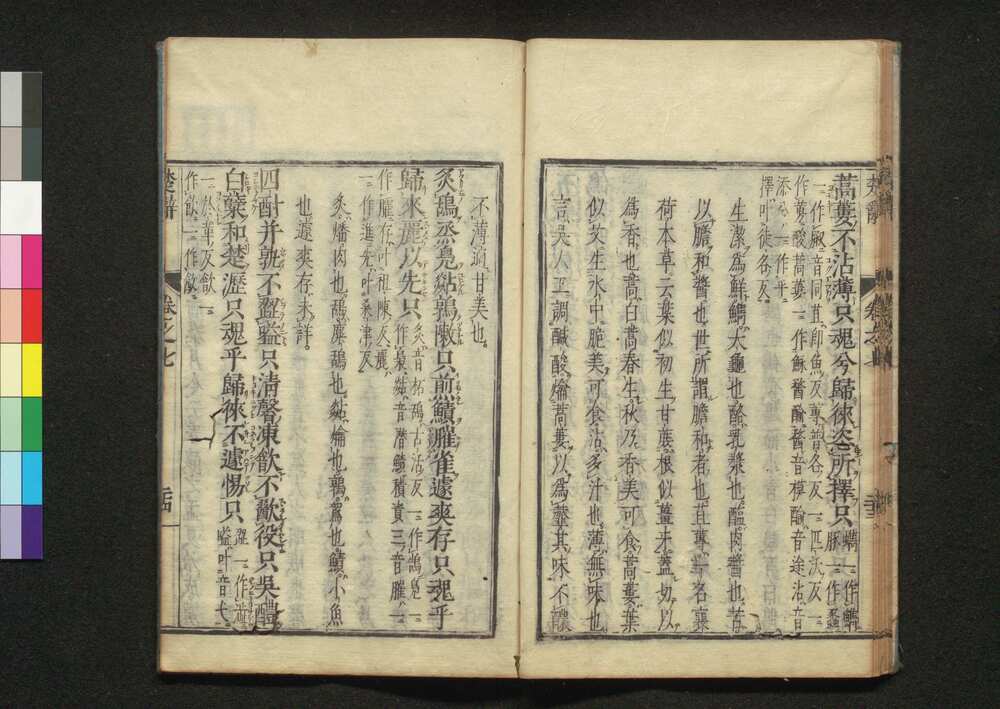 蒿蔞不沾薄只魂兮歸徠恣所擇只 蠵一作蠵豚一作
一作 音同苴即魚反蓴普各反一匹沃反一
作蓴酸蒿蔞一作酥醬醢醬音模醢音途沾音
添兮一作乎
擇叶徒各反
生潔為鮮蠵大龜也酪乳漿也醢肉醬也苦
以膽和醬也世所謂膽和者也苴蓴一名蘘
荷本草云葉似初生甘蔗根似薑牙蓋切以
為香也蒿白蒿春生秋乃香美可食蒿蔞葉
似艾生水中脆美可食沾多汁也薄無味也
言吳人工調醎酸爚蒿蔞以為虀其味不醲
不薄適甘美也
炙鴰烝鳧煔鶉敶只前鱝臛雀遽爽存只魂乎
歸來麗以先只 炙音柘鴰古活反一作鵠鳧一
作梟煔音潛鱝積資三音臛一
作 存叶祖陳反麗
一作進先叶桑津反
炙燔肉也鴰麋鴰也煔爚也鶉鶉也鱝小魚
也遽爽存未詳
四酎并孰不歰嗌只清馨凍飲不歠役只吳醴
白糵和楚瀝只魂乎歸徠不遽惕只 歰一作澁
嗌叶音
一於革反飲一
作飮一作
楚辭
卷之七
卷之七